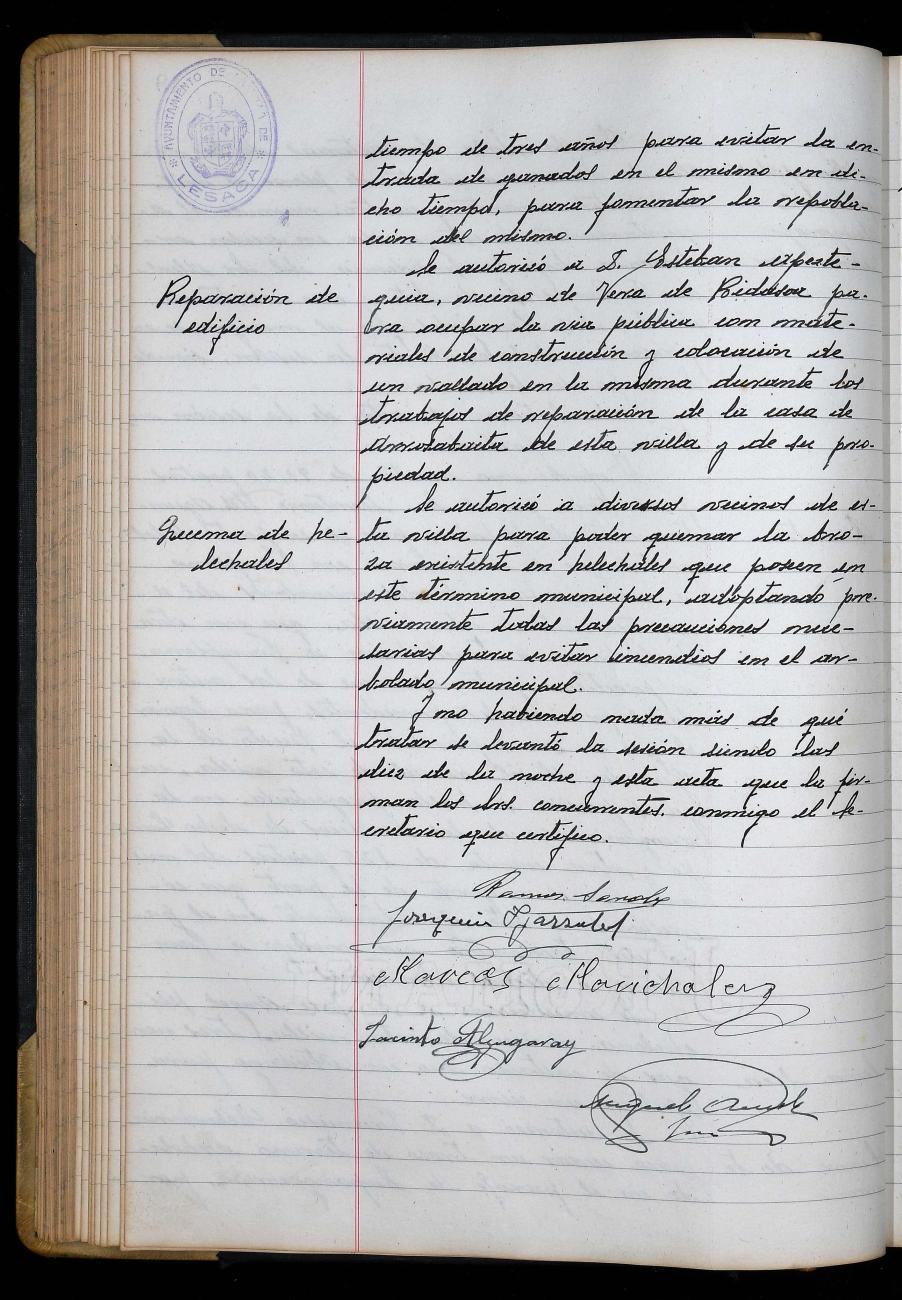 AYUNTAMIENTO DE LA VILLA DE
* LESACA *
tiempo de tres años para evitar la en-
trada de ganados en el mismo en di-
cho tiempo, para fomentar la repobla-
ción del mismo.
Reparación de
edificio
Se autorizó a D. Esteban Apezte-
guia, vecino de Vera de Bidasoa pa-
ra ocupar la via pública con mate-
riales de construcción y colocación de
un vallado en la misma durante los
trabajos de reparación de la casa de
Arrosabaita de esta villa y de su pro-
piedad.
Quema de he-
lechales
Se autorizó a diversos vecinos de es-
ta villa para poder quemar la bro-
za existente en helechales que poseen en
este término municipal, adoptando pre-
viamente todas las precauciones nece-
sarias para evitar incendios en el ar-
bolado municipal.
Y no habiendo nada más de qué
tratar se levantó la sesión siendo las
diez de la noche y esta acta que la fir-
man los Srs. concurrentes. conmigo el Se-
cretario que certifico.
Ramon
Joaquin
Marcos Marichalar
Jacinto Alzugaray
Miguel